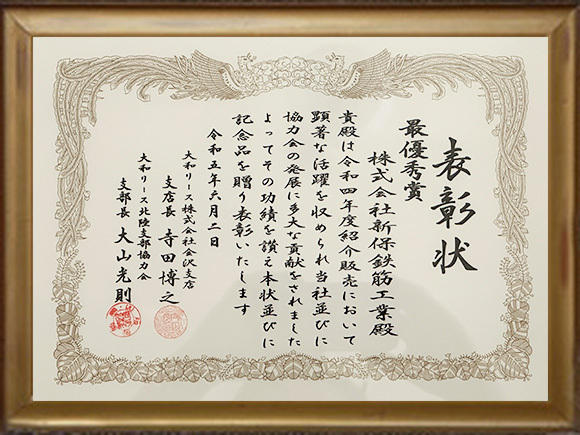 表彰状
最優秀賞
株式会社新保鉄筋工業殿
貴殿は令和四年度紹介販売において
顕著な活躍を収められ当社並びに
協力会の発展に多大な貢献をされました
よってその功績を讃え本状並びに
記念品を贈り表彰いたします
令和五年六月二日
大和リース株式会社金沢支店
支店長 寺田博之
大和リース北陸支部協力会
支部長 大山光則